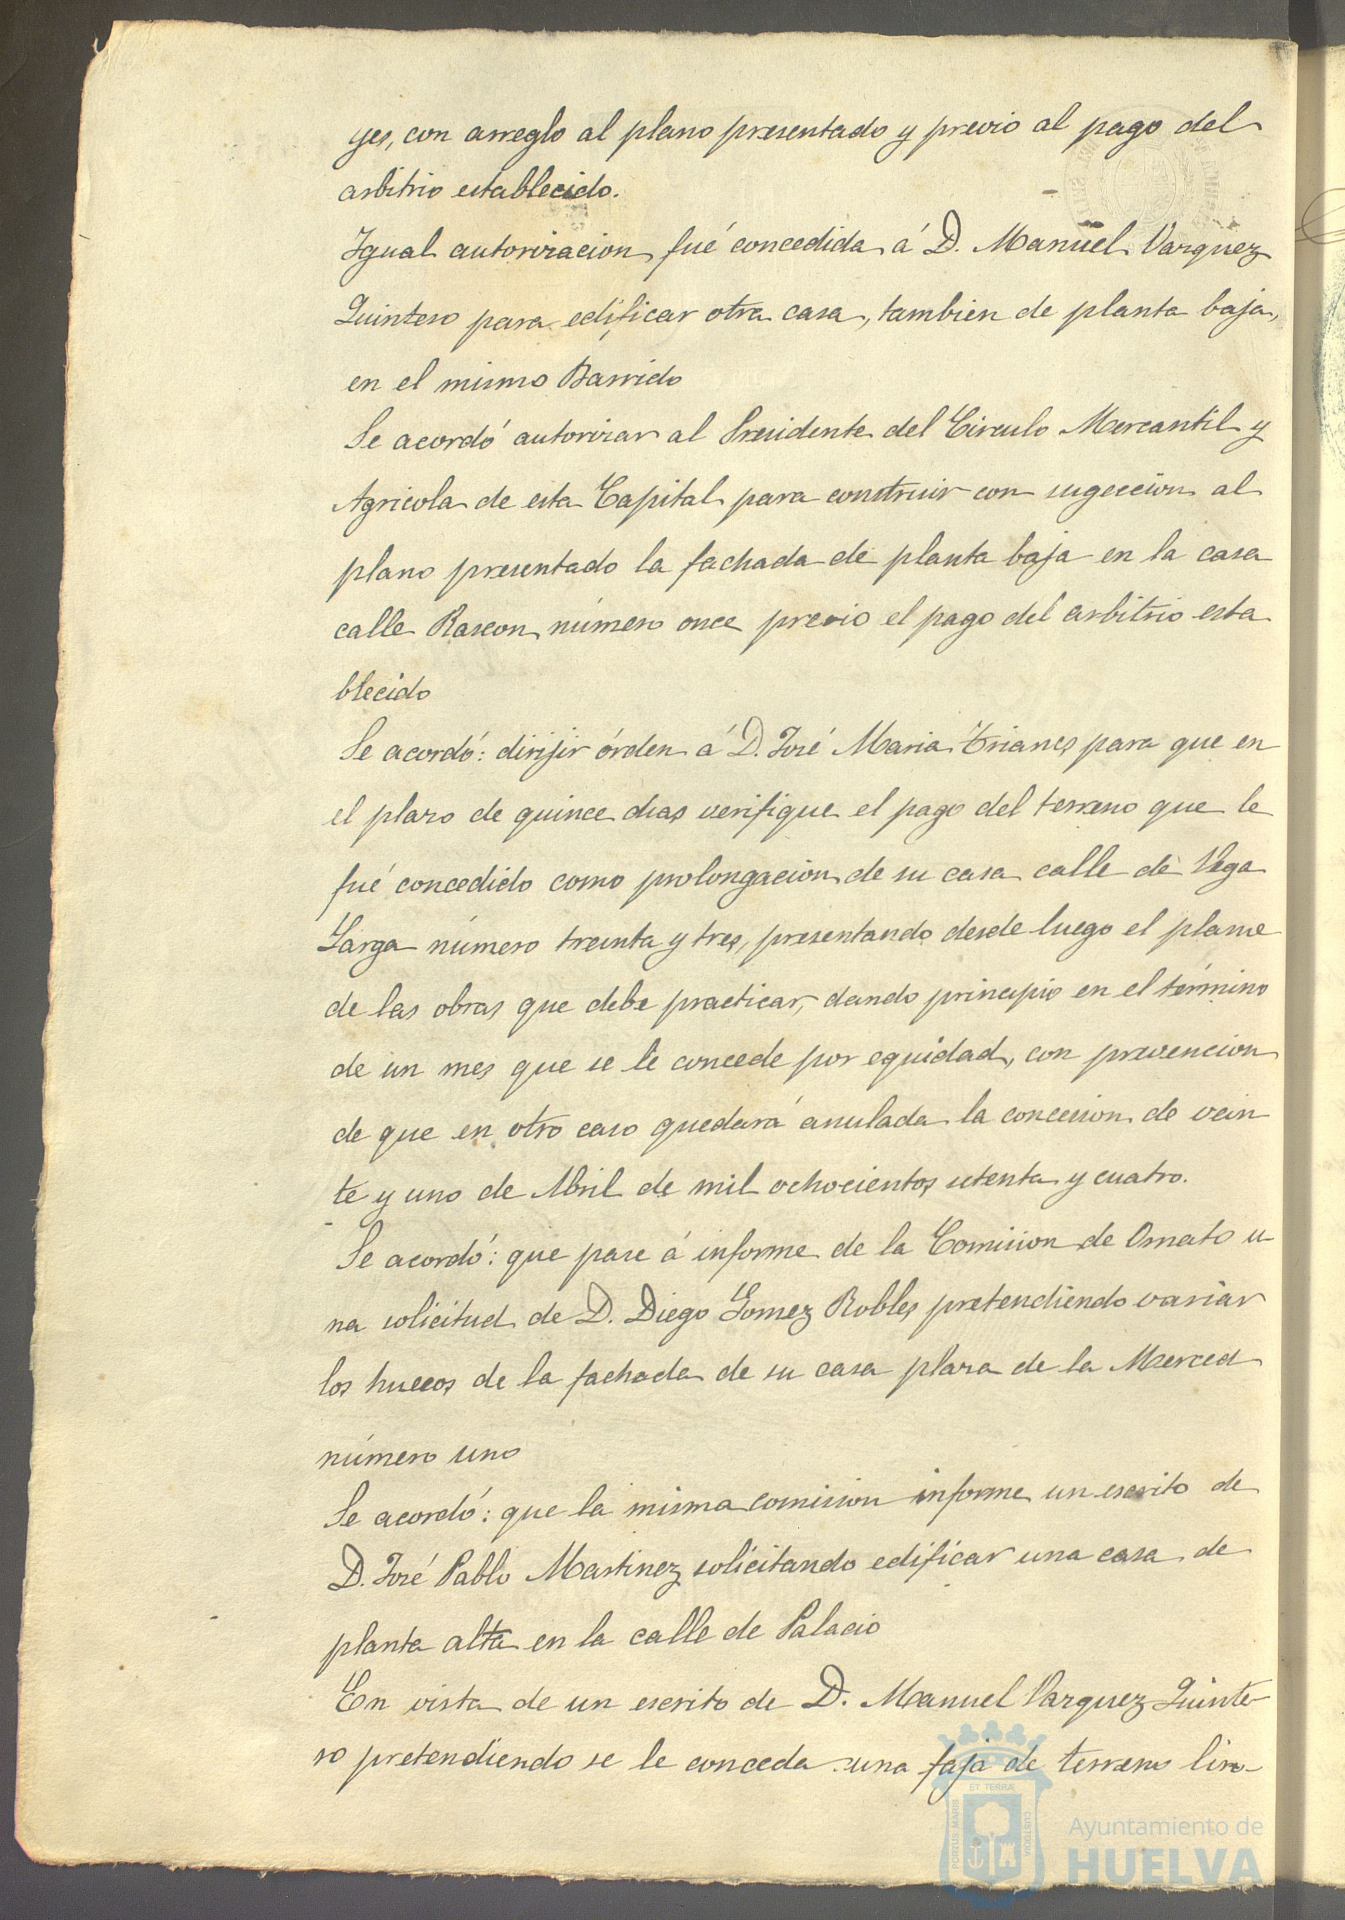 yes, con arreglo al plano presentado y previo al pago del
arbitrio establecido.
Igual autorizacion fué concedida á D. Manuel Vazquez
Quintero para edificar otra casa, tambien de planta baja,
en el mismo Barrido
Se acordó autorizar al Presidente del Circulo Mercantil y
Agricola de esta Capital para construir con sugeccion al
plano presentado la fachada de planta baja en la casa
calle Rascon número once previo el pago del arbitrio esta
blecido
Se acordó: dirijir órden á D. José Maria Trianes para que en
el plazo de quince dias verifique el pago del terreno que le
fué concedido como prolongacion de su casa calle de Vega
Larga número treinta y tres, presentando desde luego el plane
de las obras que debe practicar, dando principio en el término
de un mes que se le concede por equidad, con prevencion
de que en otro caso quedará anulada la concesion de vein
te y uno de Abril de mil ochocientos setenta y cuatro.
Se acordó: que pase á informe de la Comision de Ornato u
na solicitud de D. Diego Gomez Robles pretendiendo variar
los huecos de la fachada de su casa plaza de la Merced
número uno
Se acordó: que la misma comision informe un escrito de
D. José Pablo Martinez solicitando edificar una casa de
planta alta en la calle de Palacio
En vista de un escrito de D. Manuel Vazquez Quinte-
ro pretendiendo se le conceda una faja de terreno lin-
PORTUS MARIS ET TERRÆ CUSTODIA
Ayuntamiento de
HUELVA